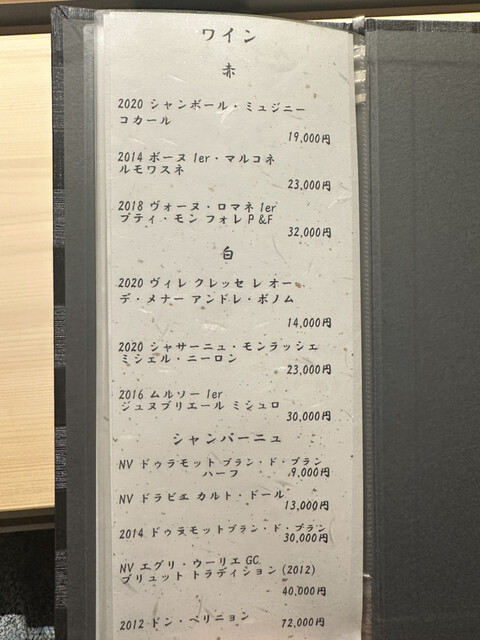 ワイン
赤
2020 シャンボール・ミュジニー
コカール
19,000円
2014 ボーヌ 1er・マルコネ
ルモワスネ
23,000円
2018 ヴォーヌ・ロマネ 1er
プティ・モン フォレ P&F
32,000円
白
2020 ヴィレ クレッセ レ オー
デ・メナー アンドレ・ボノム
14,000円
2020 シャサーニュ・モンラッシェ
ミシェル・ニーロン
23,000円
2016 ムルソー 1er
ジュヌブリエール ミシュロ
30,000円
シャンパーニュ
NV ドゥラモット ブラン・ド・ブラン
ハーフ 9,000円
NV ドラピエ カルト・ドール
13,000円
2014 ドゥラモットブラン・ド・ブラン
30,000円
NV エグリ・ウーリエ GC
ブリュット トラディション (2012)
40,000円
2012 ドン・ペリニョン 72,000円